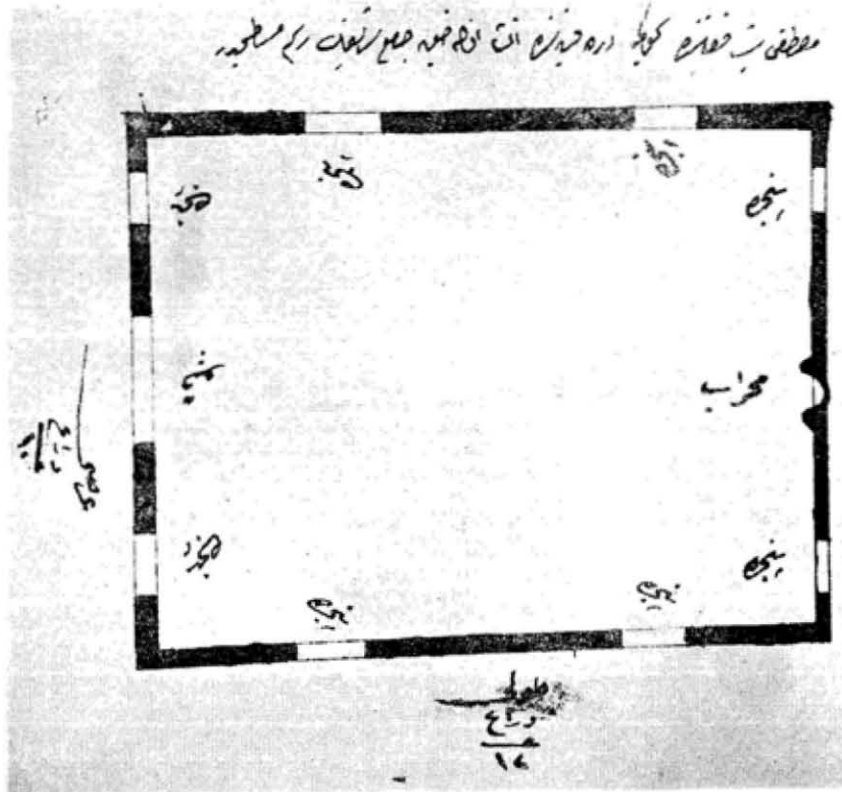 مصطفى پاشا قضاسنه دره قريه سنده انشا اولنه جق جامع شريفك رسم مسطحيدر
پنجره
پنجره
پنجره
پنجره
محراب
قپو
پنجره
پنجره
پنجره
پنجره
عرضى
ذراع
طولى
ذراع
١٢